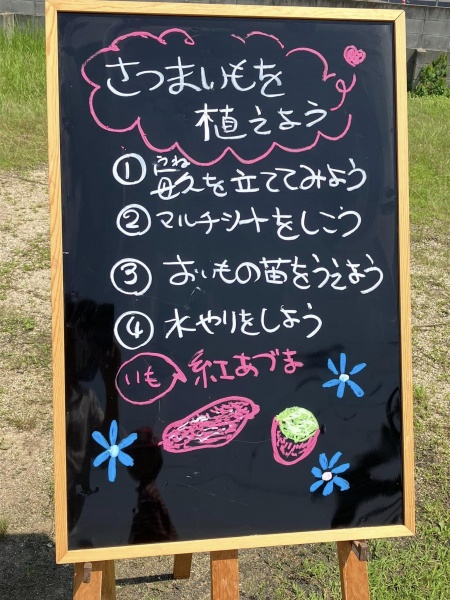 さつまいもを
植えよう
① 畝を立ててみよう
うね
② マルチシートをしこう
③ おいもの苗をうえよう
④ 水やりをしよう
いも 紅あづま